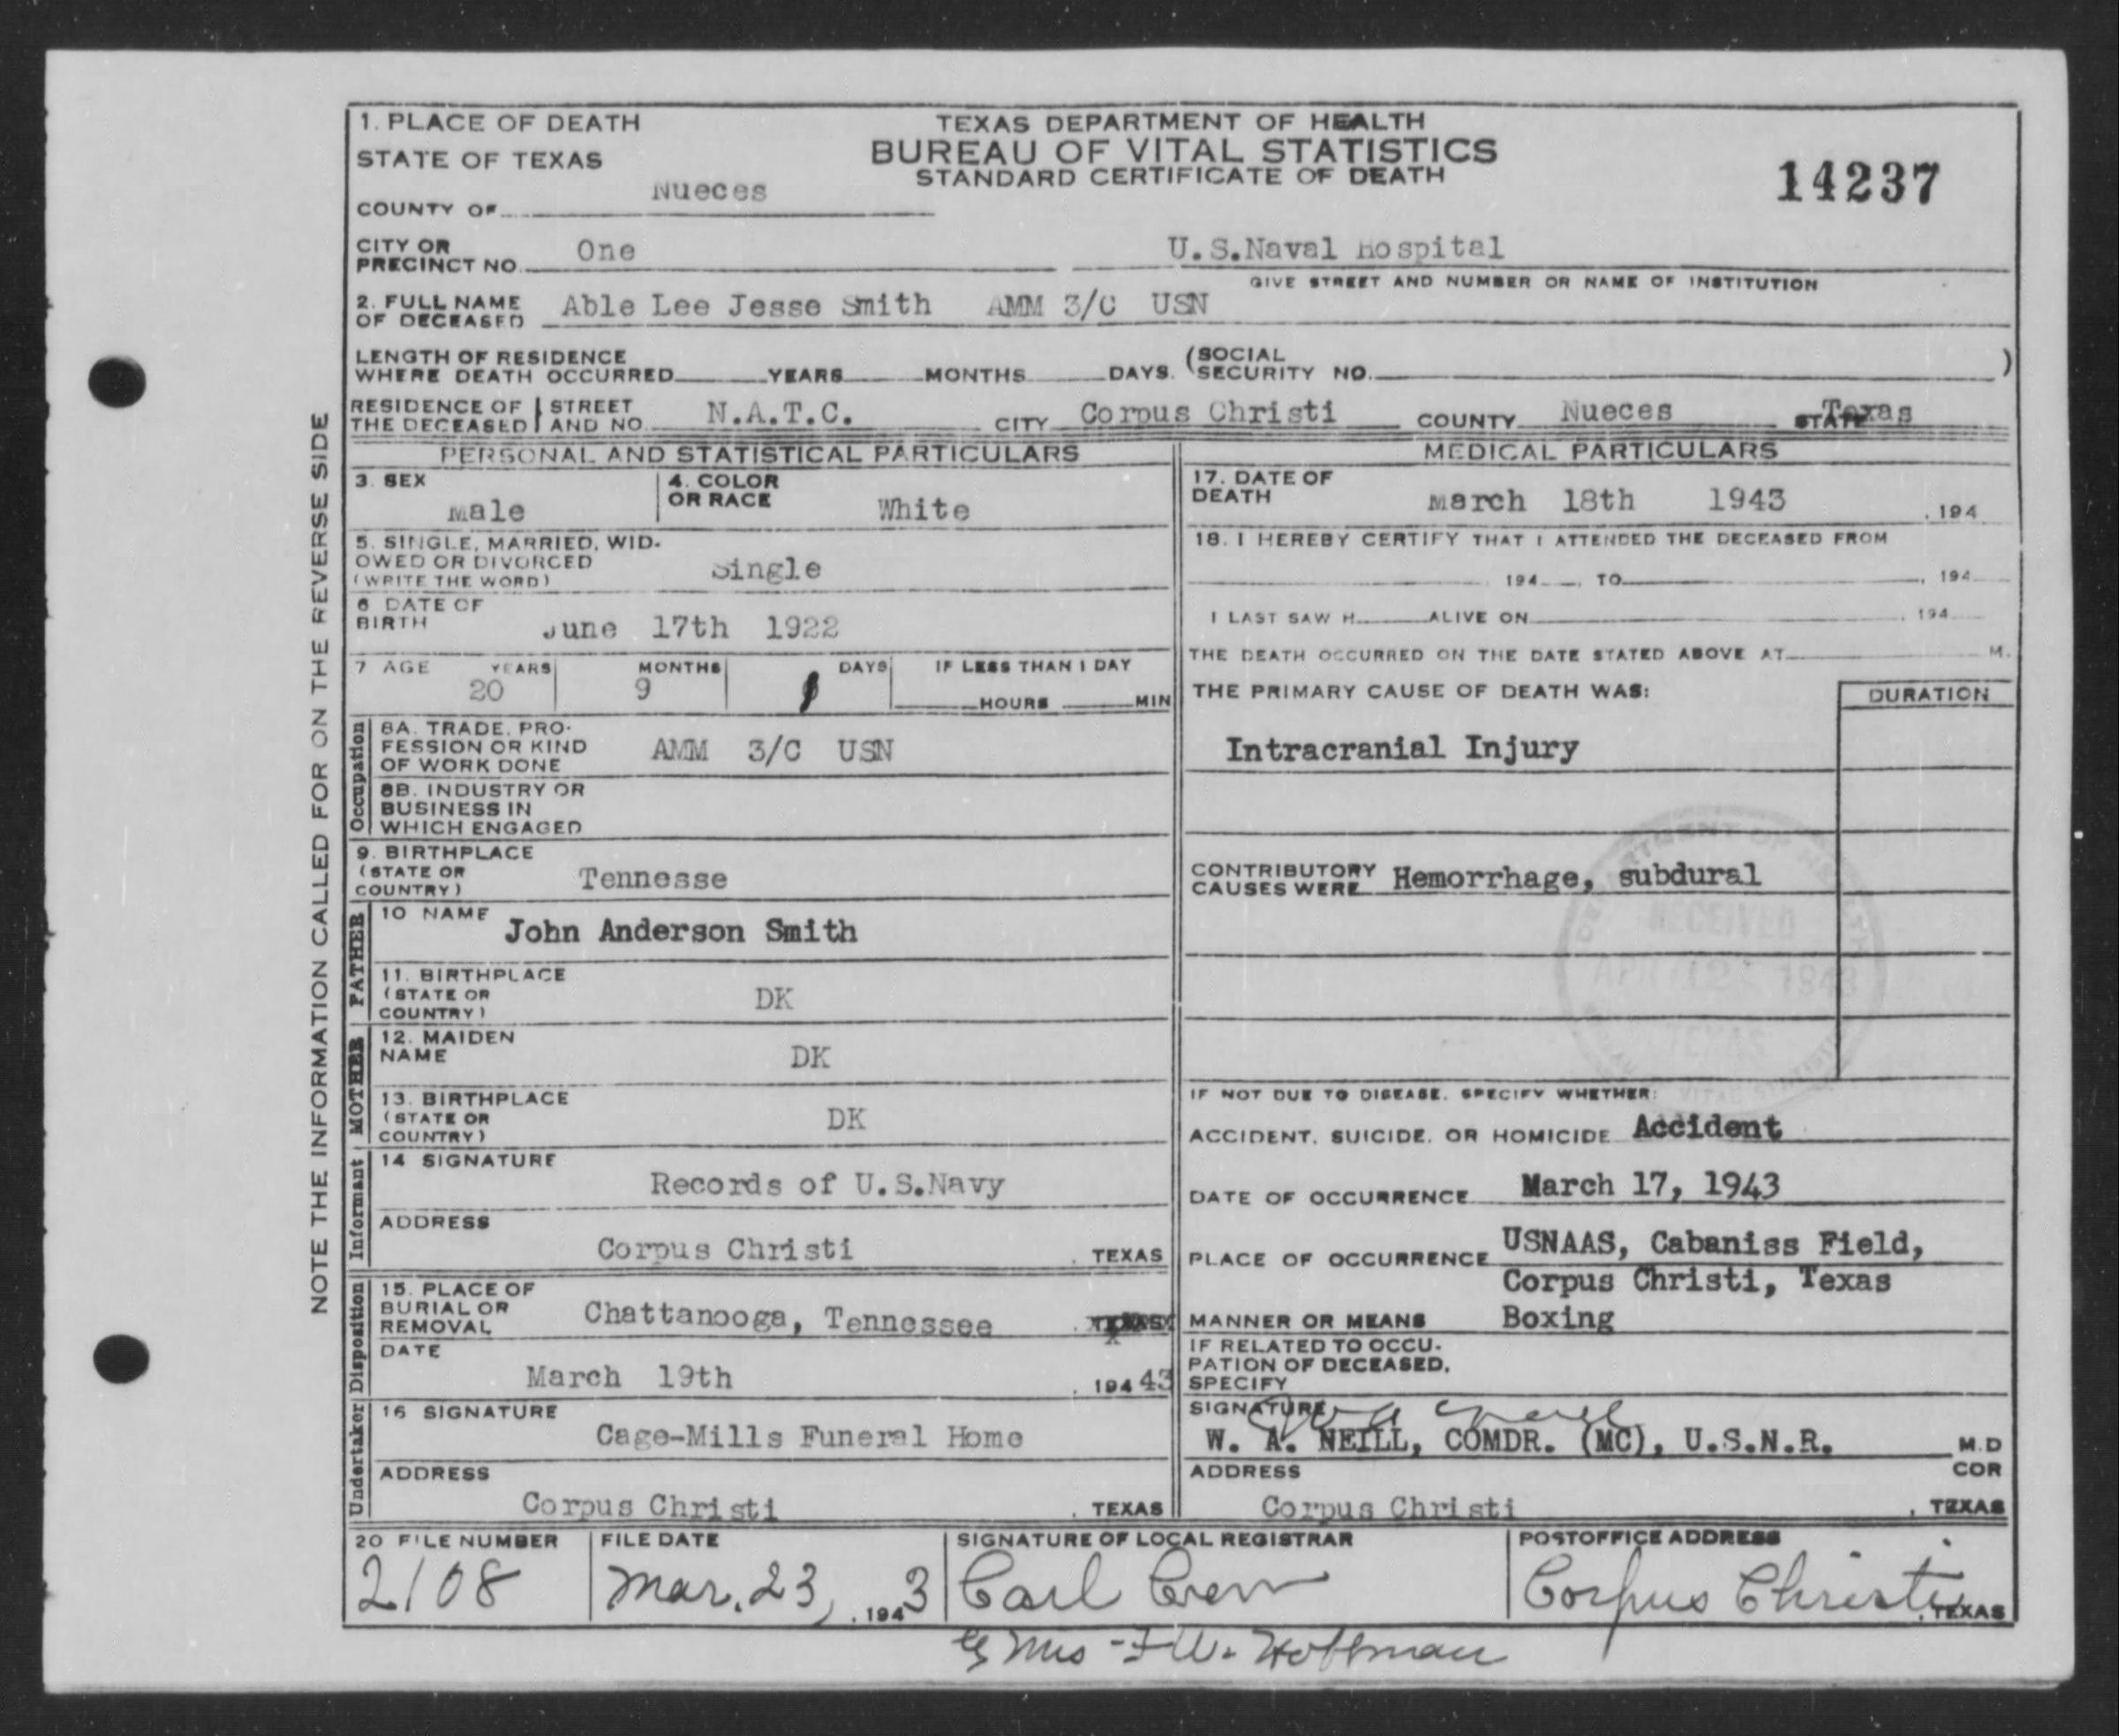 NOTE THE INFORMATION CALLED FOR ON THE REVERSE SIDE
1. PLACE OF DEATH
STATE OF TEXAS
COUNTY OF Nueces
TEXAS DEPARTMENT OF HEALTH
BUREAU OF VITAL STATISTICS
STANDARD CERTIFICATE OF DEATH
14237
CITY OR PRECINCT NO. One
U.S.Naval Hospital
GIVE STREET AND NUMBER OR NAME OF INSTITUTION
2. FULL NAME OF DECEASED Able Lee Jesse Smith AMM 3/C USN
LENGTH OF RESIDENCE WHERE DEATH OCCURRED YEARS MONTHS DAYS. (SOCIAL SECURITY NO. )
RESIDENCE OF THE DECEASED STREET AND NO. N.A.T.C. CITY Corpus Christi COUNTY Nueces STATE Texas
PERSONAL AND STATISTICAL PARTICULARS
3. SEX Male
4. COLOR OR RACE White
5. SINGLE, MARRIED, WID-
OWED OR DIVORCED
(WRITE THE WORD) Single
6 DATE OF BIRTH June 17th 1922
7 AGE YEARS MONTHS DAYS IF LESS THAN 1 DAY
20 9 1 HOURS MIN
Occupation
8A. TRADE, PRO-
FESSION OR KIND
OF WORK DONE AMM 3/C USN
8B. INDUSTRY OR
BUSINESS IN
WHICH ENGAGED
9. BIRTHPLACE
(STATE OR
COUNTRY) Tennesse
FATHER
10 NAME John Anderson Smith
11. BIRTHPLACE
(STATE OR
COUNTRY) DK
MOTHER
12. MAIDEN
NAME DK
13. BIRTHPLACE
(STATE OR
COUNTRY) DK
Informant
14 SIGNATURE
Records of U.S.Navy
ADDRESS
Corpus Christi , TEXAS
Disposition
15. PLACE OF
BURIAL OR
REMOVAL Chattanooga, Tennessee
DATE
March 19th , 194 43
Undertaker
16 SIGNATURE
Cage-Mills Funeral Home
ADDRESS
Corpus Christi , TEXAS
MEDICAL PARTICULARS
17. DATE OF
DEATH March 18th 1943 , 194
18. I HEREBY CERTIFY THAT I ATTENDED THE DECEASED FROM
, 194 , TO , 194
I LAST SAW H ALIVE ON , 194
THE DEATH OCCURRED ON THE DATE STATED ABOVE AT M.
THE PRIMARY CAUSE OF DEATH WAS: DURATION
Intracranial Injury
CONTRIBUTORY
CAUSES WERE Hemorrhage, subdural
DEPARTMENT OF HEALTH
RECEIVED
APR 12 1943
TEXAS
IF NOT DUE TO DISEASE, SPECIFY WHETHER:
ACCIDENT, SUICIDE, OR HOMICIDE Accident
DATE OF OCCURRENCE March 17, 1943
PLACE OF OCCURRENCE USNAAS, Cabaniss Field,
Corpus Christi, Texas
MANNER OR MEANS Boxing
IF RELATED TO OCCU-
PATION OF DECEASED,
SPECIFY
SIGNATURE W A Neill
W. A. NEILL, COMDR. (MC), U.S.N.R. M.D
ADDRESS COR
Corpus Christi , TEXAS
20 FILE NUMBER FILE DATE SIGNATURE OF LOCAL REGISTRAR POSTOFFICE ADDRESS
2108 Mar. 23, , 194 3 Carl Crew Corpus Christi , TEXAS
By Mrs F W. Hoffman